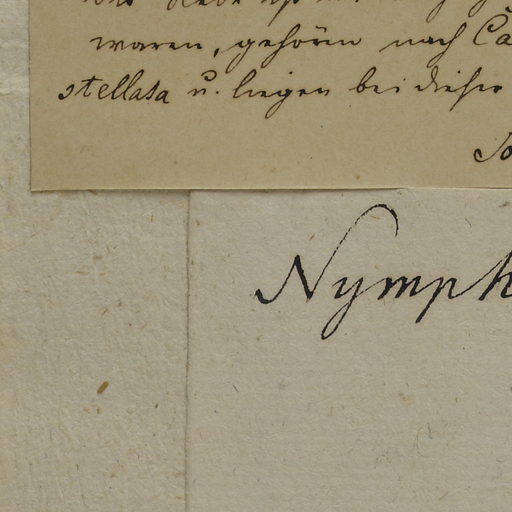 waren, gehören nach Ca
stellata u. liegen bei dieser
Nymph